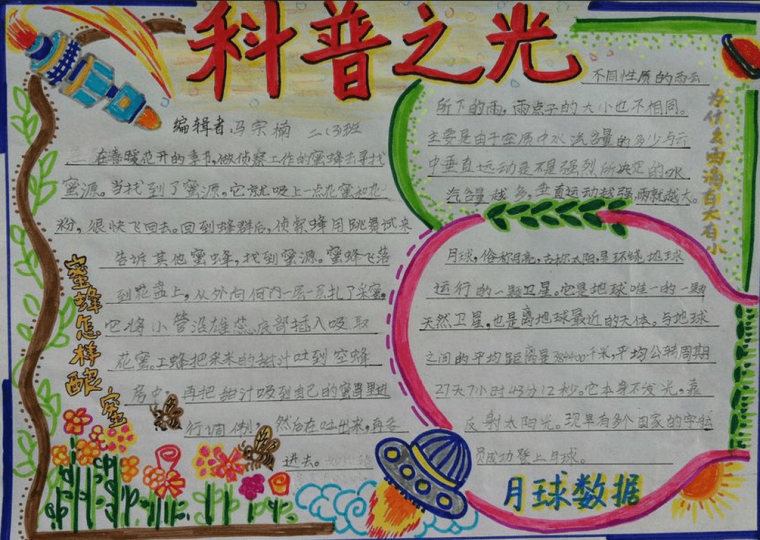 科普之光
编辑者冯宗楠 二(3)班
在春暖花开的季节,做侦察工作的蜜蜂去寻找
蜜源。当找到了蜜源,它就吸上一点花蜜和花
粉,很快飞回去。回到蜂群后,侦察蜂用跳舞
告诉其他蜜蜂,找到蜜源。蜜蜂飞落
到花蕊上,从外向内一层一层扎了采蜜,
它将小管沿雄蕊底部插入吸取
花蜜工蜂把采来的甜汁吐到空蜂
房中,再把甜汁吸到自己的蜜胃里进
行调制,然后在吐出来,再吞
进去。
蜜蜂怎样酿蜜
不同性质的雨云
所下的雨,雨点子的大小也不相同。
主要是由于空质中水汽含量的多少与云
中垂直运动是不是强烈所决定的水
汽含量越多,垂直运动越强,雨就越大。
为什么雨滴有大有小
月球,俗称月亮,古称太阴,是环绕地球
运行的一颗卫星。它是地球唯一的一颗
天然卫星,也是离地球最近的天体。与地球
之间的平均距离是384400千米,平均公转周期
27天7小时43分12秒。它本身不发光,靠
反射太阳光。现早有多个国家的宇航
员成功登上月球。
月球数据